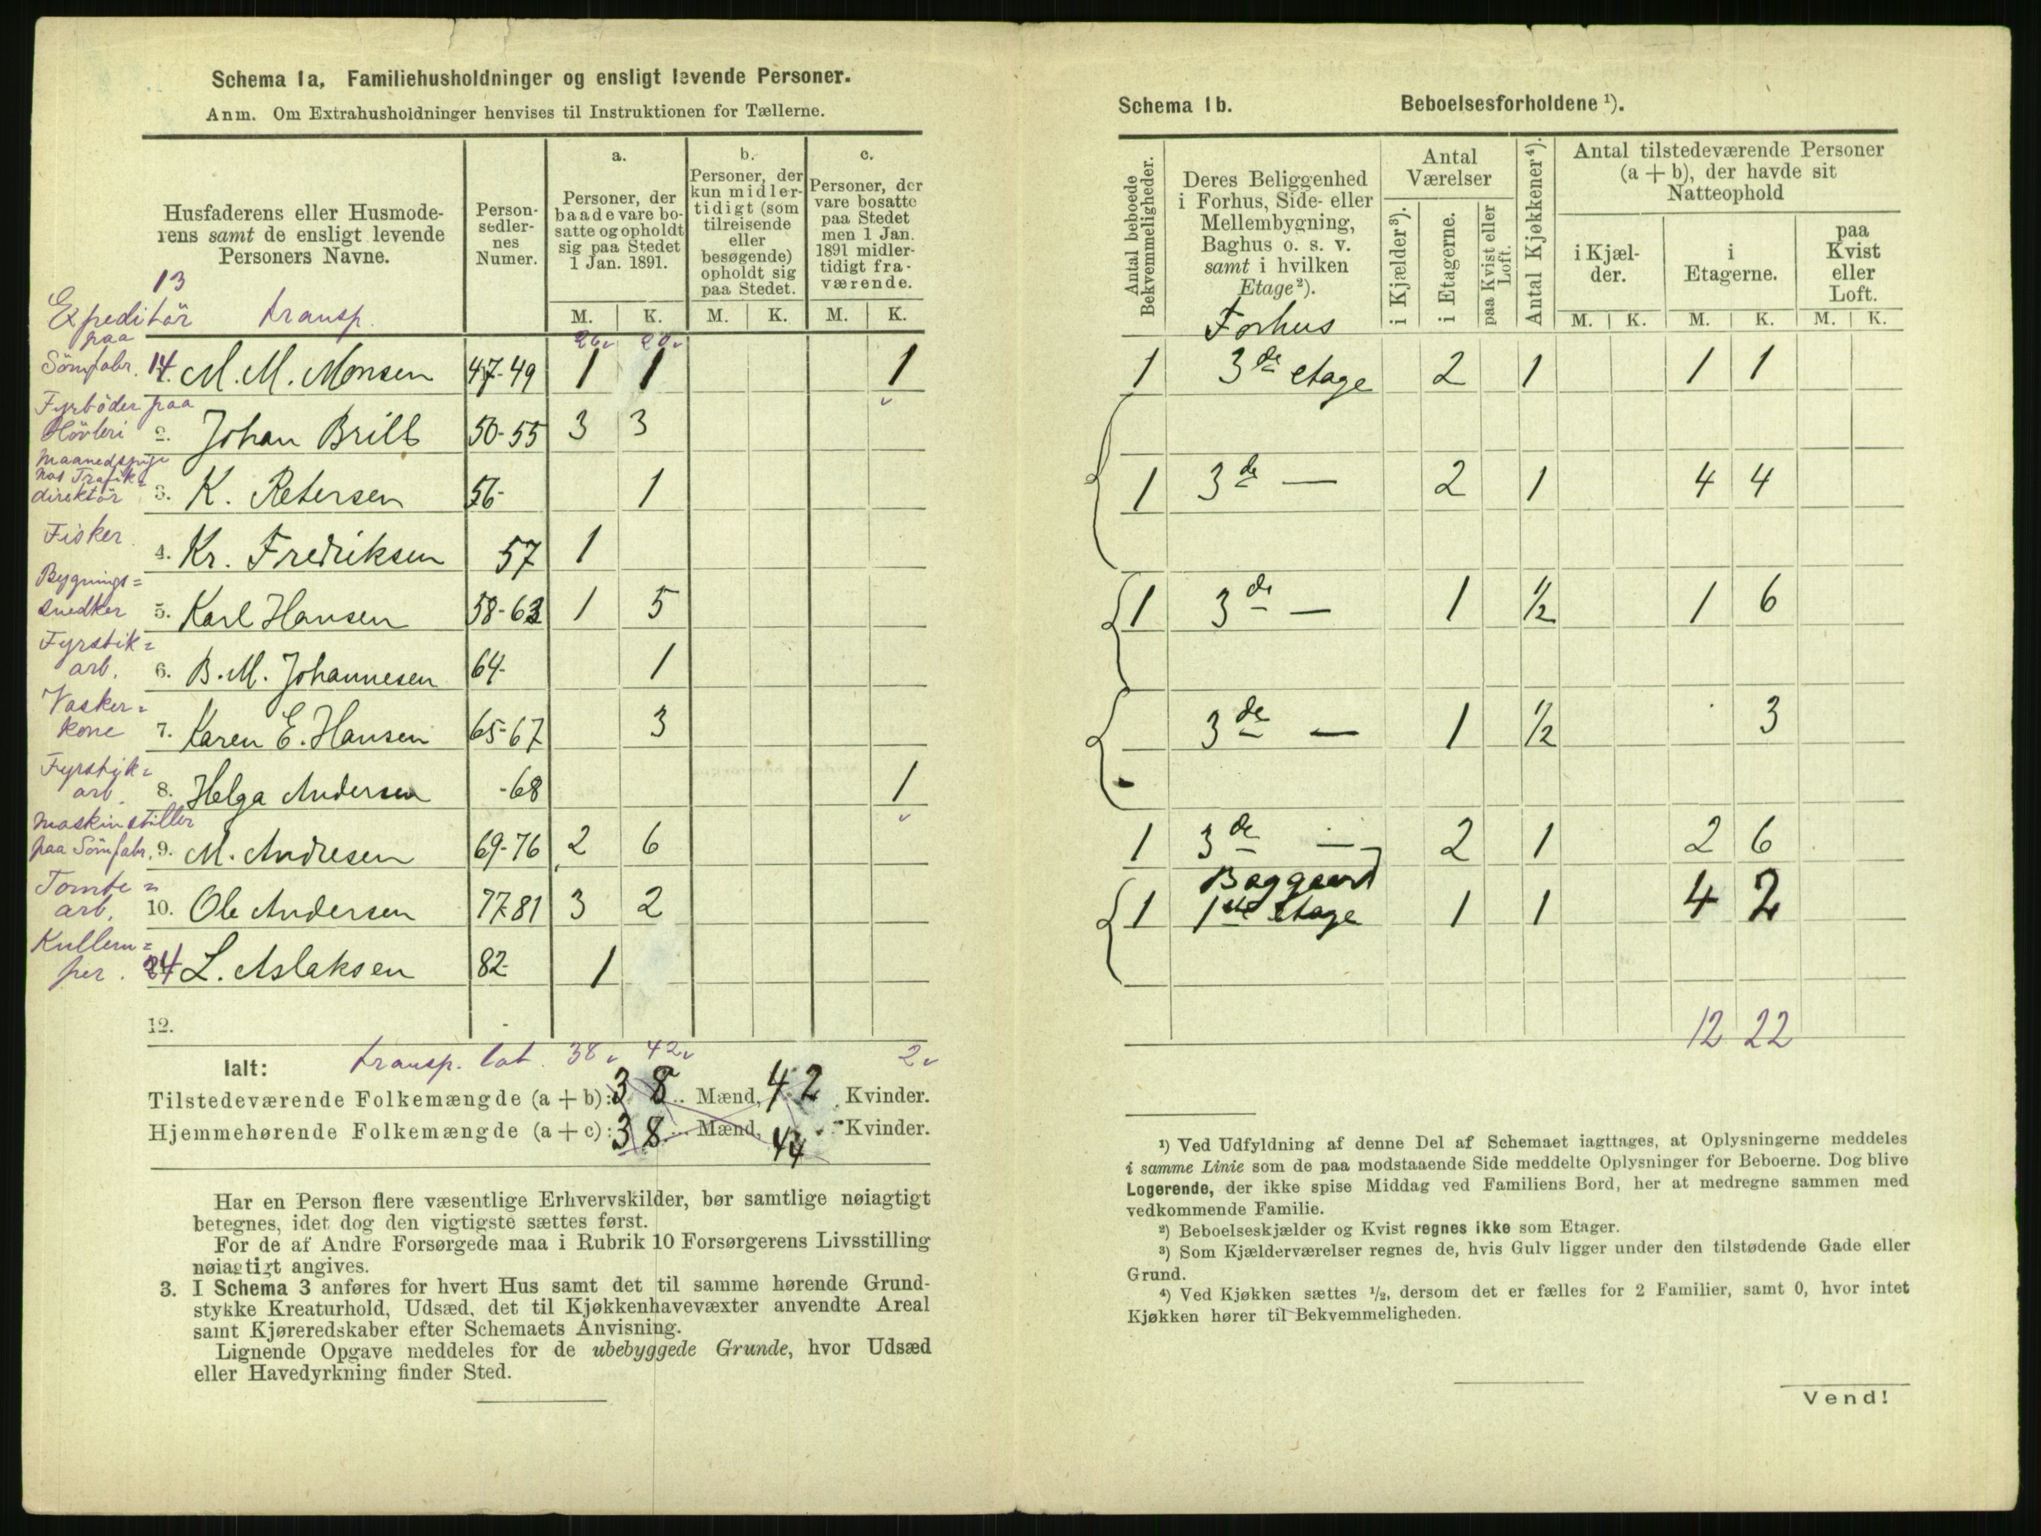 Schema 1a. Familiehusholdninger og ensligt levende Personer.
Anm. Om Extrahusholdninger henvises til Instruktionen for Tællerne.
Husfaderens eller Husmoderens samt de ensligt levende Personers Navne.
Personsedlernes Numer.
a. Personer, der baade vare bosatte og opholdt sig paa Stedet 1 Jan. 1891.
b. Personer, der kun midlertidigt (som tilreisende eller besøgende) opholdt sig paa Stedet.
c. Personer, der vare bosatte paa Stedet men 1 Jan. 1891 midlertidigt fraværende.
M. K. M. K. M. K.
13 transp.
Expeditör paa Sömfabr. 14. M. M. Monsen 47-49 1 1 1
Fyrböder paa Hövleri 2. Johan Brill 50-55 3 3
direktör 3. K. Petersen 56- 1
Fisker 4. Kr. Fredriksen 57 1
Bygnings= snedker 5. Karl Hansen 58-63 1 5
Fyrstik= arb. 6. B. M. Johannesen 64- 1
Vasker= kone 7. Karen E. Hansen 65-67 3
Fyrstik= arb. 8. Helga Andersen -68 1
Maskinstiller paa Sömfabr. 9. M. Andresen 69-76 2 6
Tomte= arb. 10. Ole Andersen 77-81 3 2
24 L. Aslaksen 82- 1
12.
Ialt: transp. lat. 38 42 2
Tilstedeværende Folkemængde (a + b): 38 Mænd, 42 Kvinder.
Hjemmehørende Folkemængde (a + c): 38 Mænd, 44 Kvinder.
Har en Person flere væsentlige Erhvervskilder, bør samtlige nøiagtigt
betegnes, idet dog den vigtigste sættes først.
For de af Andre Forsørgede maa i Rubrik 10 Forsørgerens Livsstilling
nøiagtigt angives.
3. I Schema 3 anføres for hvert Hus samt det til samme hørende Grund-
stykke Kreaturhold, Udsæd, det til Kjøkkenhavevæxter anvendte Areal
samt Kjøreredskaber efter Schemaets Anvisning.
Lignende Opgave meddeles for de ubebyggede Grunde, hvor Udsæd
eller Havedyrkning finder Sted.
Schema 1b. Beboelsesforholdene ¹).
Antal beboede Bekvemmeligheder.
Deres Beliggenhed i Forhus, Side- eller Mellembygning, Baghus o. s. v. samt i hvilken Etage²).
Antal Værelser
i Kjælder³).
i Etagerne.
paa Kvist eller Loft.
Antal Kjøkkener⁴).
Antal tilstedeværende Personer (a + b), der havde sit Natteophold
i Kjælder.
i Etagerne.
paa Kvist eller Loft.
M. K. M. K. M. K.
Forhus
1 3de etage 2 1 1 1
1 3de — 2 1 4 4
1 3de — 1 1/2 1 6
3de — 1 1/2 3
1 3de — 2 1 2 6
Baggaard
1 1ste etage 1 1 4 2
12 22
¹) Ved Udfyldning af denne Del af Schemaet iagttages, at Oplysningerne meddeles
i samme Linie som de paa modstaaende Side meddelte Oplysninger for Beboerne. Dog blive
Logerende, der ikke spise Middag ved Familiens Bord, her at medregne sammen med
vedkommende Familie.
²) Beboelseskjælder og Kvist regnes ikke som Etager.
³) Som Kjælderværelser regnes de, hvis Gulv ligger under den tilstødende Gade eller
Grund.
⁴) Ved Kjøkken sættes ½, dersom det er fælles for 2 Familier, samt 0, hvor intet
Kjøkken hører til Bekvemmeligheden.
Vend!